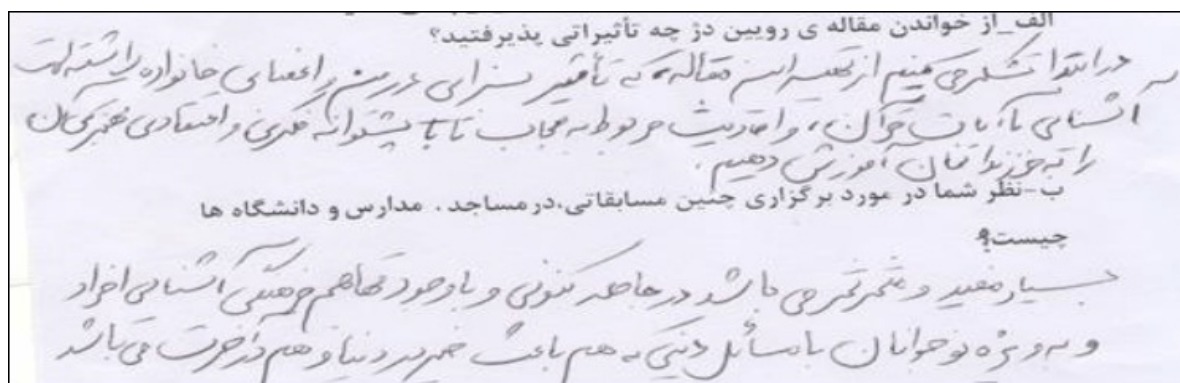 الف_از خواندن مقاله ی رویین دژ چه تأثیراتی پذیرفتید؟
در ابتدا تشکر می کنیم از تهیه این مقاله، که تأثیر بسزایی در من و اعضای خانواده داشته است
آشنایی با آیات قرآن، و احادیث مربوط به حجاب تا با پشتوانه فکری و اعتقادی محجبگان
را به فرزندانمان آموزش دهیم.
ب-نظر شما در مورد برگزاری چنین مسابقاتی،در مساجد . مدارس و دانشگاه ها
چیست؟
بسیار مفید و مثمرثمر می باشد در جامعه کنونی و با وجود تهاجم فرهنگی آشنایی افراد
و به ویژه نوجوانان با مسائل دینی هم باعث خیر در دنیا و هم در آخرت می باشد